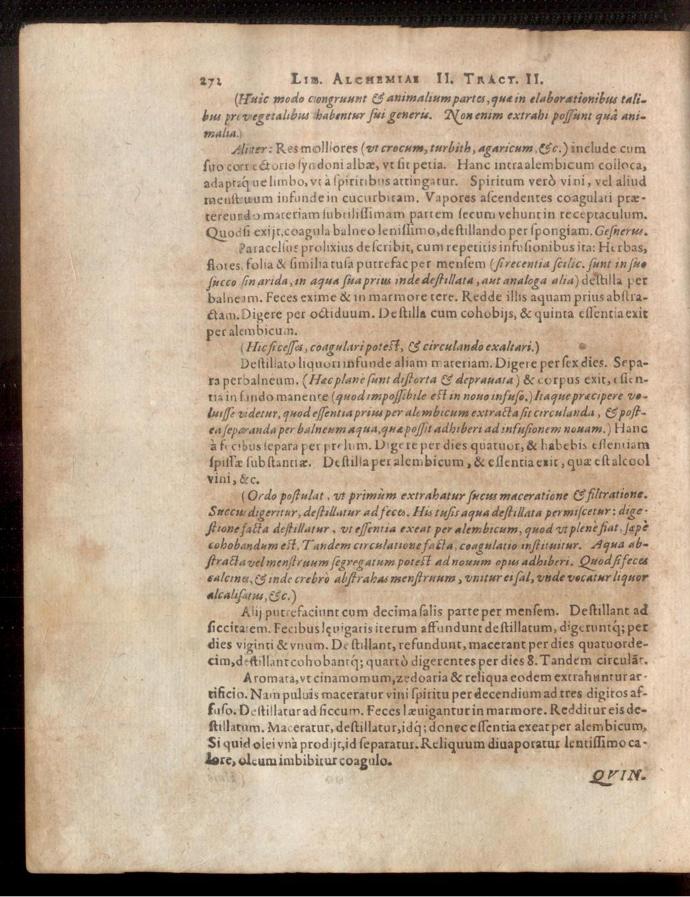 272 LIB. ALCHEMIAE II. TRACT. II.
(Huic modo congruunt & animalium partes, quæ in elaborationibus tali-
bus pro vegetalibus habentur sui generis. Non enim extrahi possunt quà ani-
malia.)
Aliter: Res molliores (vt crocum, turbith, agaricum, &c.) include cum
suo correctorio syndoni albæ, vt sit petia. Hanc intra alembicum colloca,
adaptaque limbo, vt à spiritibus attingatur. Spiritum verò vini, vel aliud
menstruum infunde in cucurbitam. Vapores ascendentes coagulari præ-
tereundo materiam subtilissimam partem secum vehunt in receptaculum.
Quod si exijt, coagula balneo lenissimo, destillando per spongiam. Gesnerus.
Paracelsus prolixius describit, cum repetitis infusionibus ita: Herbas,
flores, folia & similia tusa putrefac per mensem (si recentia scilic. sunt in suo
succo sin arida, in aqua sua prius inde destillata, aut analoga alia) destilla per
balneum. Feces exime & in marmore tere. Redde illis aquam prius abstra-
ctam. Digere per octiduum. Destilla cum cohobijs, & quinta essentia exit
per alembicum.
(Hic si cesses, coagulari potest, & circulando exaltari.)
Destillato liquori infunde aliam materiam. Digere per sex dies. Sepa-
ra per balneum. (Hæc plane sunt distorta & deprauata) & corpus exit, essen-
tia in fundo manente (quod impossibile est in nouo infuso.) Itaque præcipere vo-
luisse videtur, quod essentia prius per alembicum extracta sit circulanda, & post-
ea separanda per balneum aqua, quæ possit adhiberi ad infusionem nouam.) Hanc
à fecibus separa per prelum. Digere per dies quatuor, & habebis essentiam
spissæ substantiæ. Destilla per alembicum, & essentia exit, quæ est alcool
vini, &c.
(Ordo postulat, vt primùm extrahatur sucus maceratione & filtratione.
Succus digeritur, destillatur ad feces. His tusis aqua destillata permiscetur: dige-
stione facta destillatur, vt essentia exeat per alembicum, quod vt plene fiat, sæpè
cohobandum est. Tandem circulatione facta, coagulatio instituitur. Aqua ab-
stracta vel menstruum segregatum potest ad nouum opus adhiberi. Quod si feces
calcines, & inde crebrò abstrahas menstruum, vnitur ei sal, vnde vocatur liquor
alcalisatus, &c.)
Alij putrefaciunt cum decima salis parte per mensem. Destillant ad
siccitatem. Fecibus lęuigatis iterum affundunt destillatum, digeruntq; per
dies viginti & vnum. Destillant, refundunt, macerant per dies quatuorde-
cim, destillant cohobantq; quartò digerentes per dies 8. Tandem circulãt.
Aromata, vt cinamomum, zedoaria & reliqua eodem extrahuntur ar-
tificio. Nam puluis maceratur vini spiritu per decendium ad tres digitos af-
fuso. Destillatur ad siccum. Feces læuigantur in marmore. Redditur eis de-
stillatum. Maceratur, destillatur, idq; donec essentia exeat per alembicum,
Si quid olei vnà prodijt, id separatur. Reliquum diuaporatur lentissimo ca-
lore, oleum imbibitur coagulo.
QVIN-